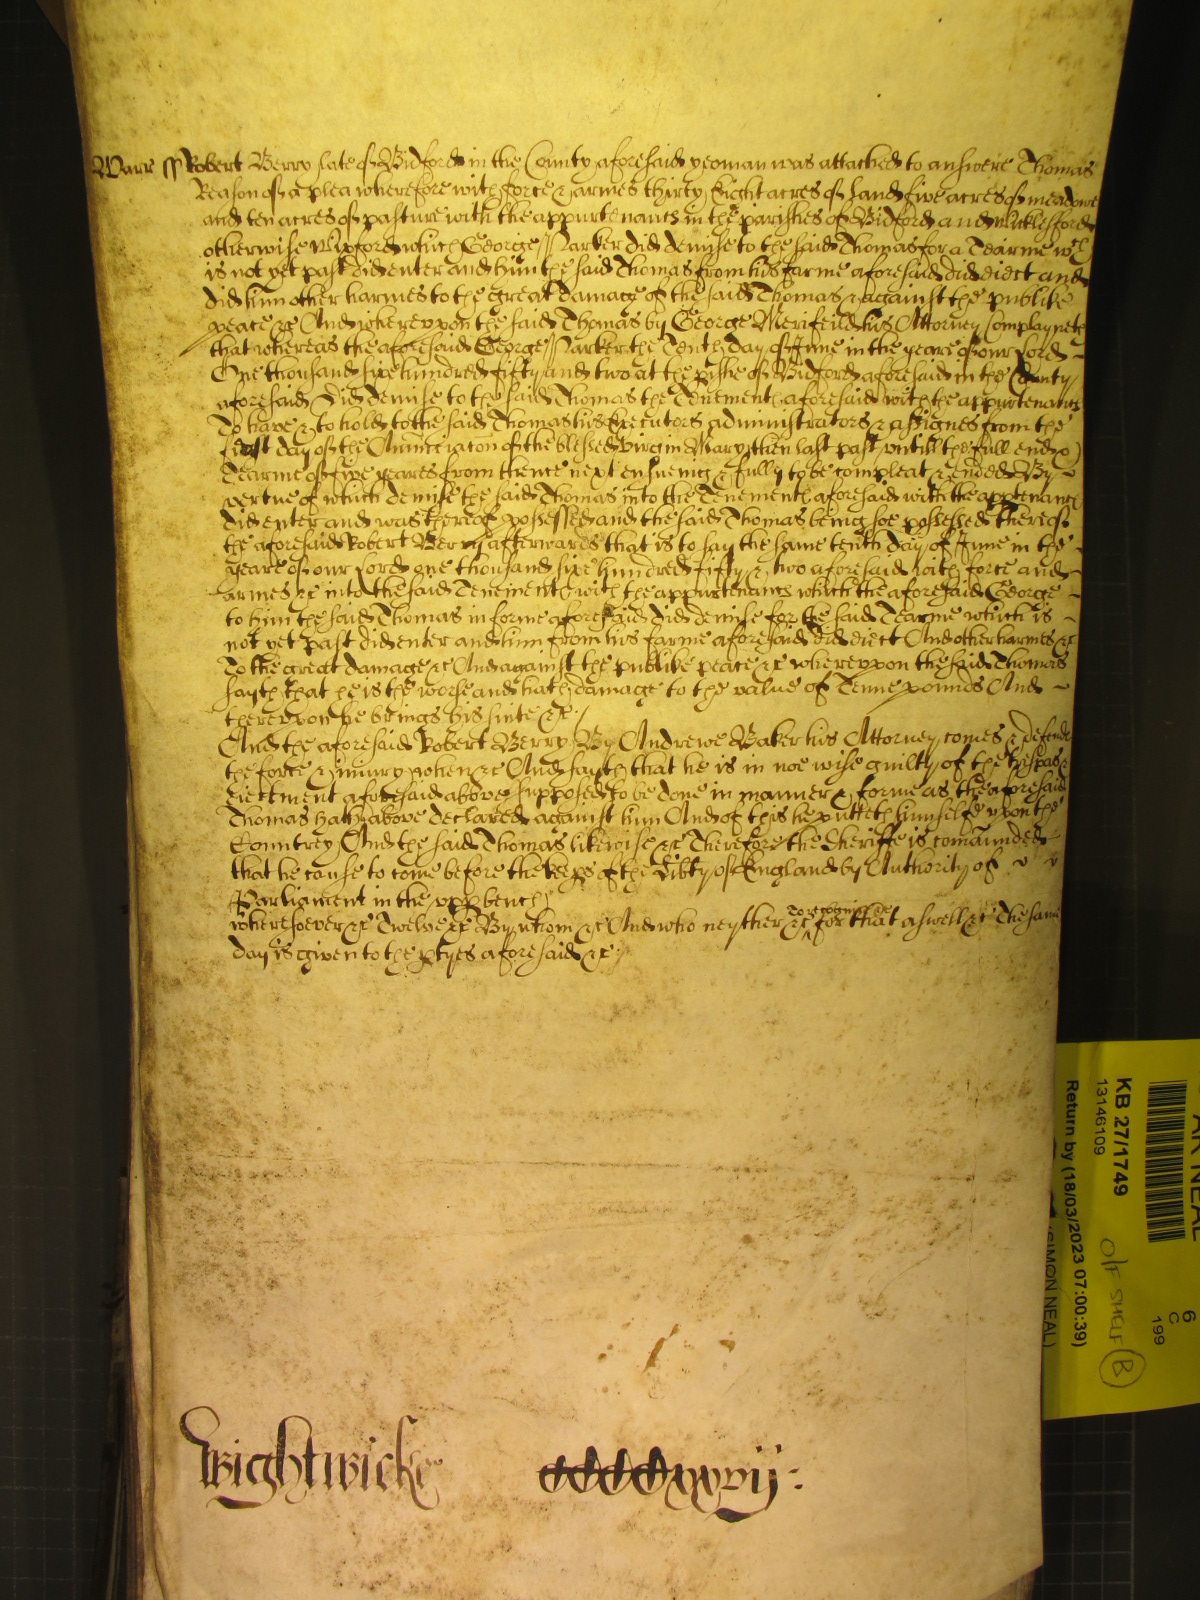 Warr ss Robert Berry late of Bidford in the County aforesaid yeoman was attached to answere Thomas
Reason of a plea wherefore with force & armes thirty Eight acres of Land five acres of meadowe
and ten acres of pasture with the appurtenancs in the parishes of Bidford and Wicklesford
otherwise Wixford which George Parker did demise to the said Thomas for a Tearme wch
is not yet past did enter and him the said Thomas from his farme aforesaid did eiect and
did him other harmes to the great damage of the said Thomas & against the publike
peace &c And whereupon the said Thomas by George Merifeild his Attorney Complayneth
that whereas the aforesaid George Parker the Tenth day of June in the yeare of our Lord
One thousand sixe hundred fifty and two at the pishe of Bidford aforesaid in the County
aforesaid Did demise to the said Thomas the Tenements aforesaid with the appurtenancs
To have & to hold to the said Thomas his Executors administrators & assignes from the
first day of the Annunciacon of the blessed virgin Mary then last past untill the full end &
Tearme of five yeares from thence next ensueing & fully to be compleat & ended By
vertue of which demise the said Thomas into the Tenements aforesaid with the apptenancs
did enter and was thereof possessed and the said Thomas being soe possessed thereof
the aforesaid Robert Berry afterwards that is to say the same tenth day of June in the
yeare of our Lord one thousand sixe hundred fifty & two aforesaid with force and
armes &c into the said Tenements with the appurtenancs which the aforesaid George
to him the said Thomas in forme aforesaid did demise for the said Tearme which is
not yet past did enter and him from his farme aforesaid did eiect And other harmes &c
To the great damage &c And against the publike peace &c whereupon the said Thomas
sayth that he is the worse and hath damage to the value of Tenne pounds And
thereupon he brings his suite &c
And the aforesaid Robert Berry By Andrewe Baker his Attorney comes & defends
the force & iniury when &c And sayth that he is in noe wise guilty of the trespas &
eiectment aforesaid above supposed to be done in manner & forme as the aforesaid
Thomas hath above declared against him And of this he putteth himselfe upon the
Countrey And the said Thomas likewise &c Therefore the Sheriffe is comaunded
that he cause to come before the Keeps of the Libty of England by Authority of
Parliament in the upp bench
wheresoever &c Twelve &c By whom &c And who neyther &c To recognize for that aswell &c The same
day is given to the ptyes aforesaid &c
Wightwicke CCCCxxvij
KB 27/1749
13146109
Return by (18/03/2023 07:00:39)
(SIMON NEAL)
AR NEAL
6
C
199
O/F SHELF
B